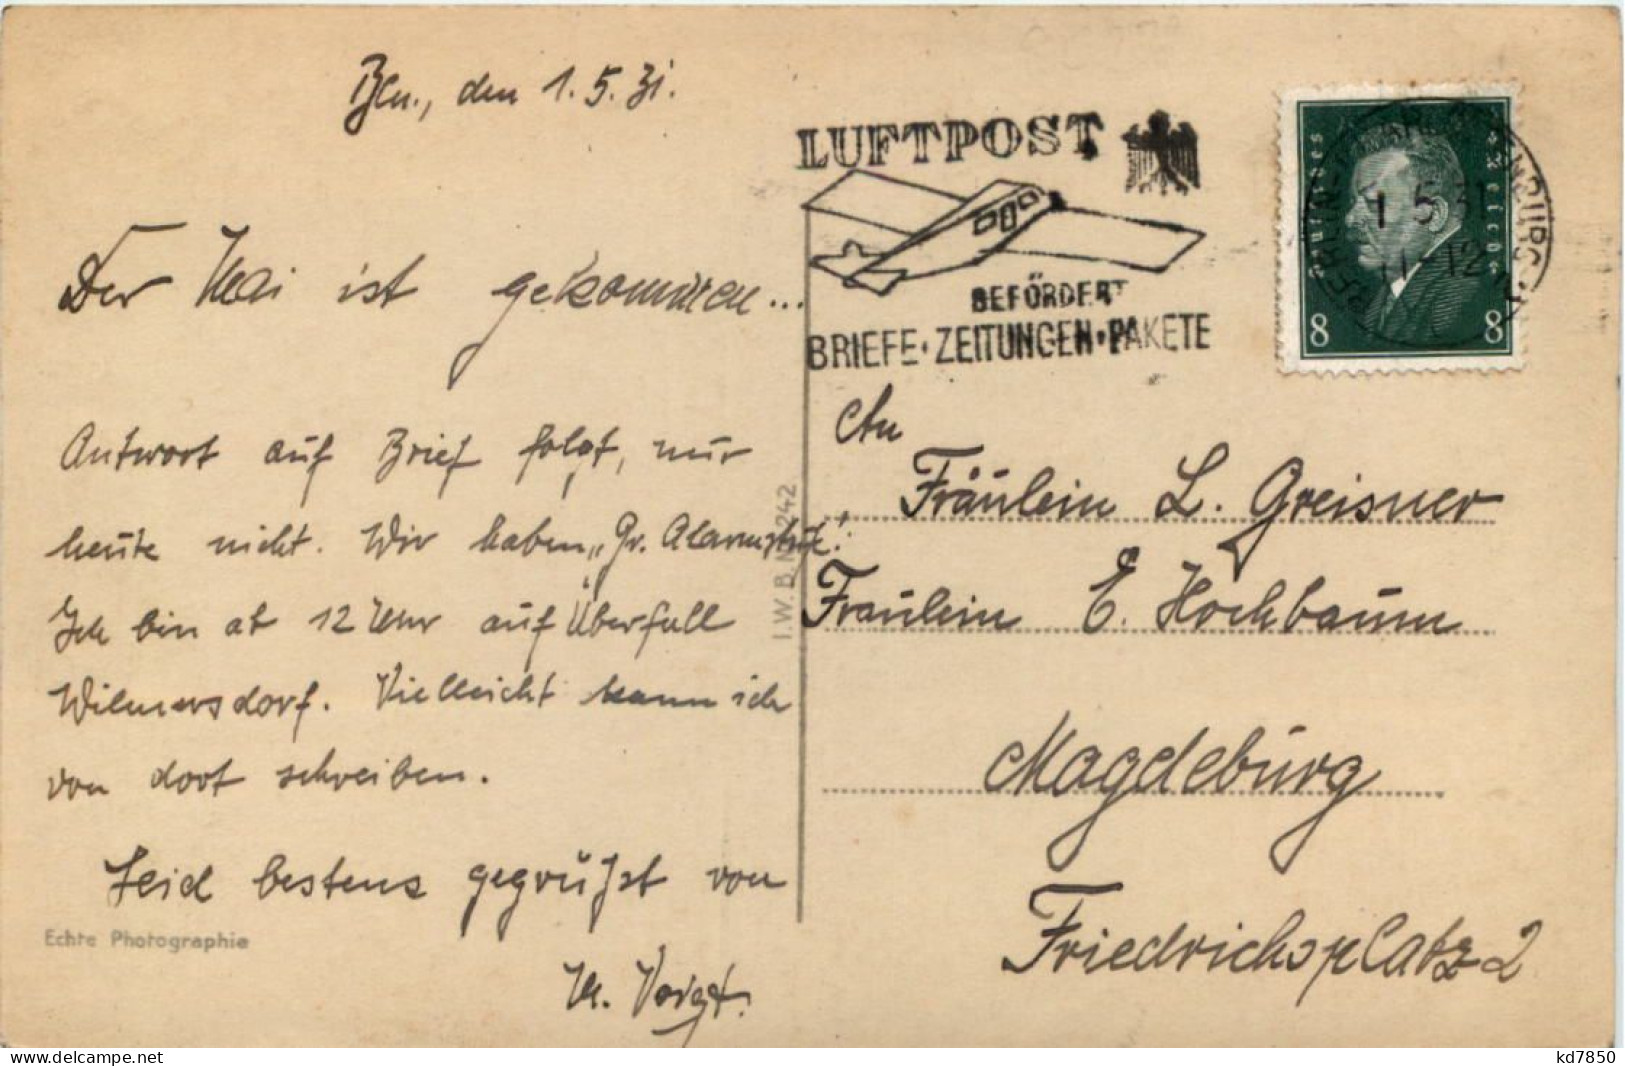 Bln., den 1.5.31.
Der Mai ist gekommen...
Antwort auf Brief folgt, nur
heute nicht. Wir haben „Gr. Alarmstufe!"
Ich bin ab 12 Uhr auf Überfall
Wilmersdorf. Vielleicht kann ich
von dort schreiben.
Seid bestens gegrüßt von
Voigt.
Echte Photographie
I.W.B. 242
LUFTPOST
BEFÖRDERT
BRIEFE·ZEITUNGEN·PAKETE
Deutsches Reich
8 8
BERLIN-CHARLOTTENBURG 2
1 5 31
11-12
An
Fräulein L. Greisner
Fräulein E. Hochbaum
Magdeburg
Friedrichsplatz 2
www.delcampe.net
kd7850